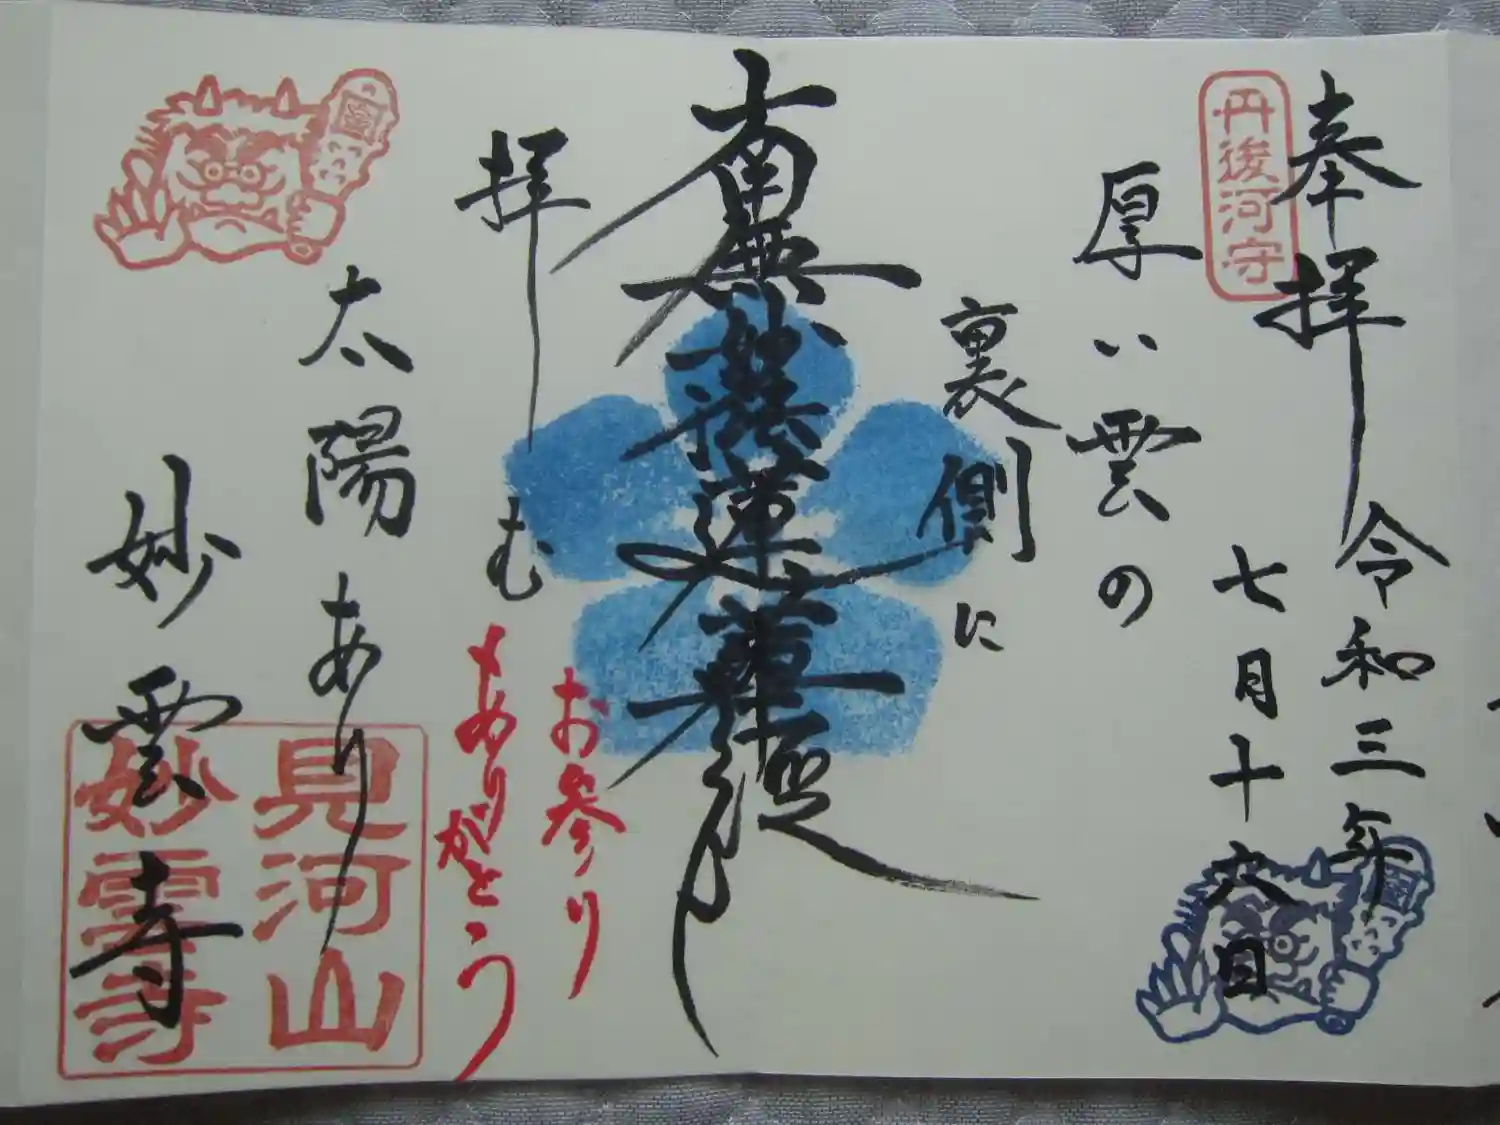 奉拝
丹後河守
令和三年
七月十六日
厚い雲の
裏側に
南無妙法蓮華経
拝む
お参り
ありがとう
太陽あり
妙雲寺
見河山
妙雲寺